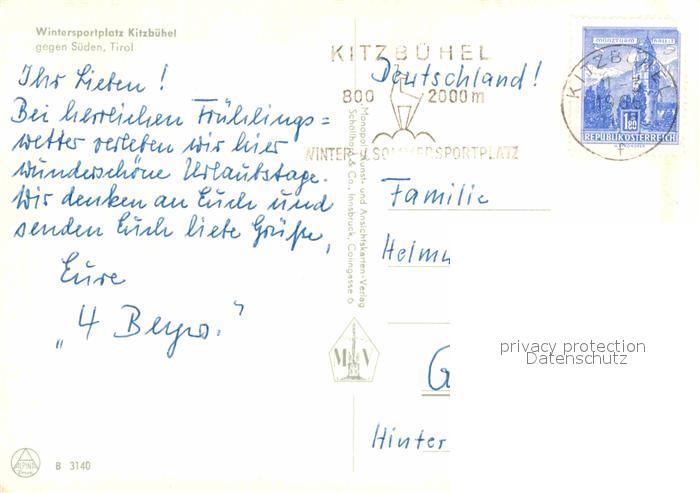 Wintersportplatz Kitzbühel
gegen Süden, Tirol
Ihr Lieben!
Bei herrlichen Frühlings=
wetter verleben wir hier
wunderschöne Urlaubstage.
Wir denken an Euch und
senden Euch liebe Grüße,
Eure
„4
B 3140
ALPINA
Monopol Kunst- und Ansichtskarten-Verlag
Schöllhorn & Co., Innsbruck, Colingasse 6
M V
KITZBÜHEL
800 2000 m
WINTER- U. SOMMERSPORTPLATZ
KITZBÜHEL
MÜNZTURM HALL I. T.
1.80
REPUBLIK ÖSTERREICH
Deutschland!
Familie
Helmu
G
Hinter
privacy protection
Datenschutz